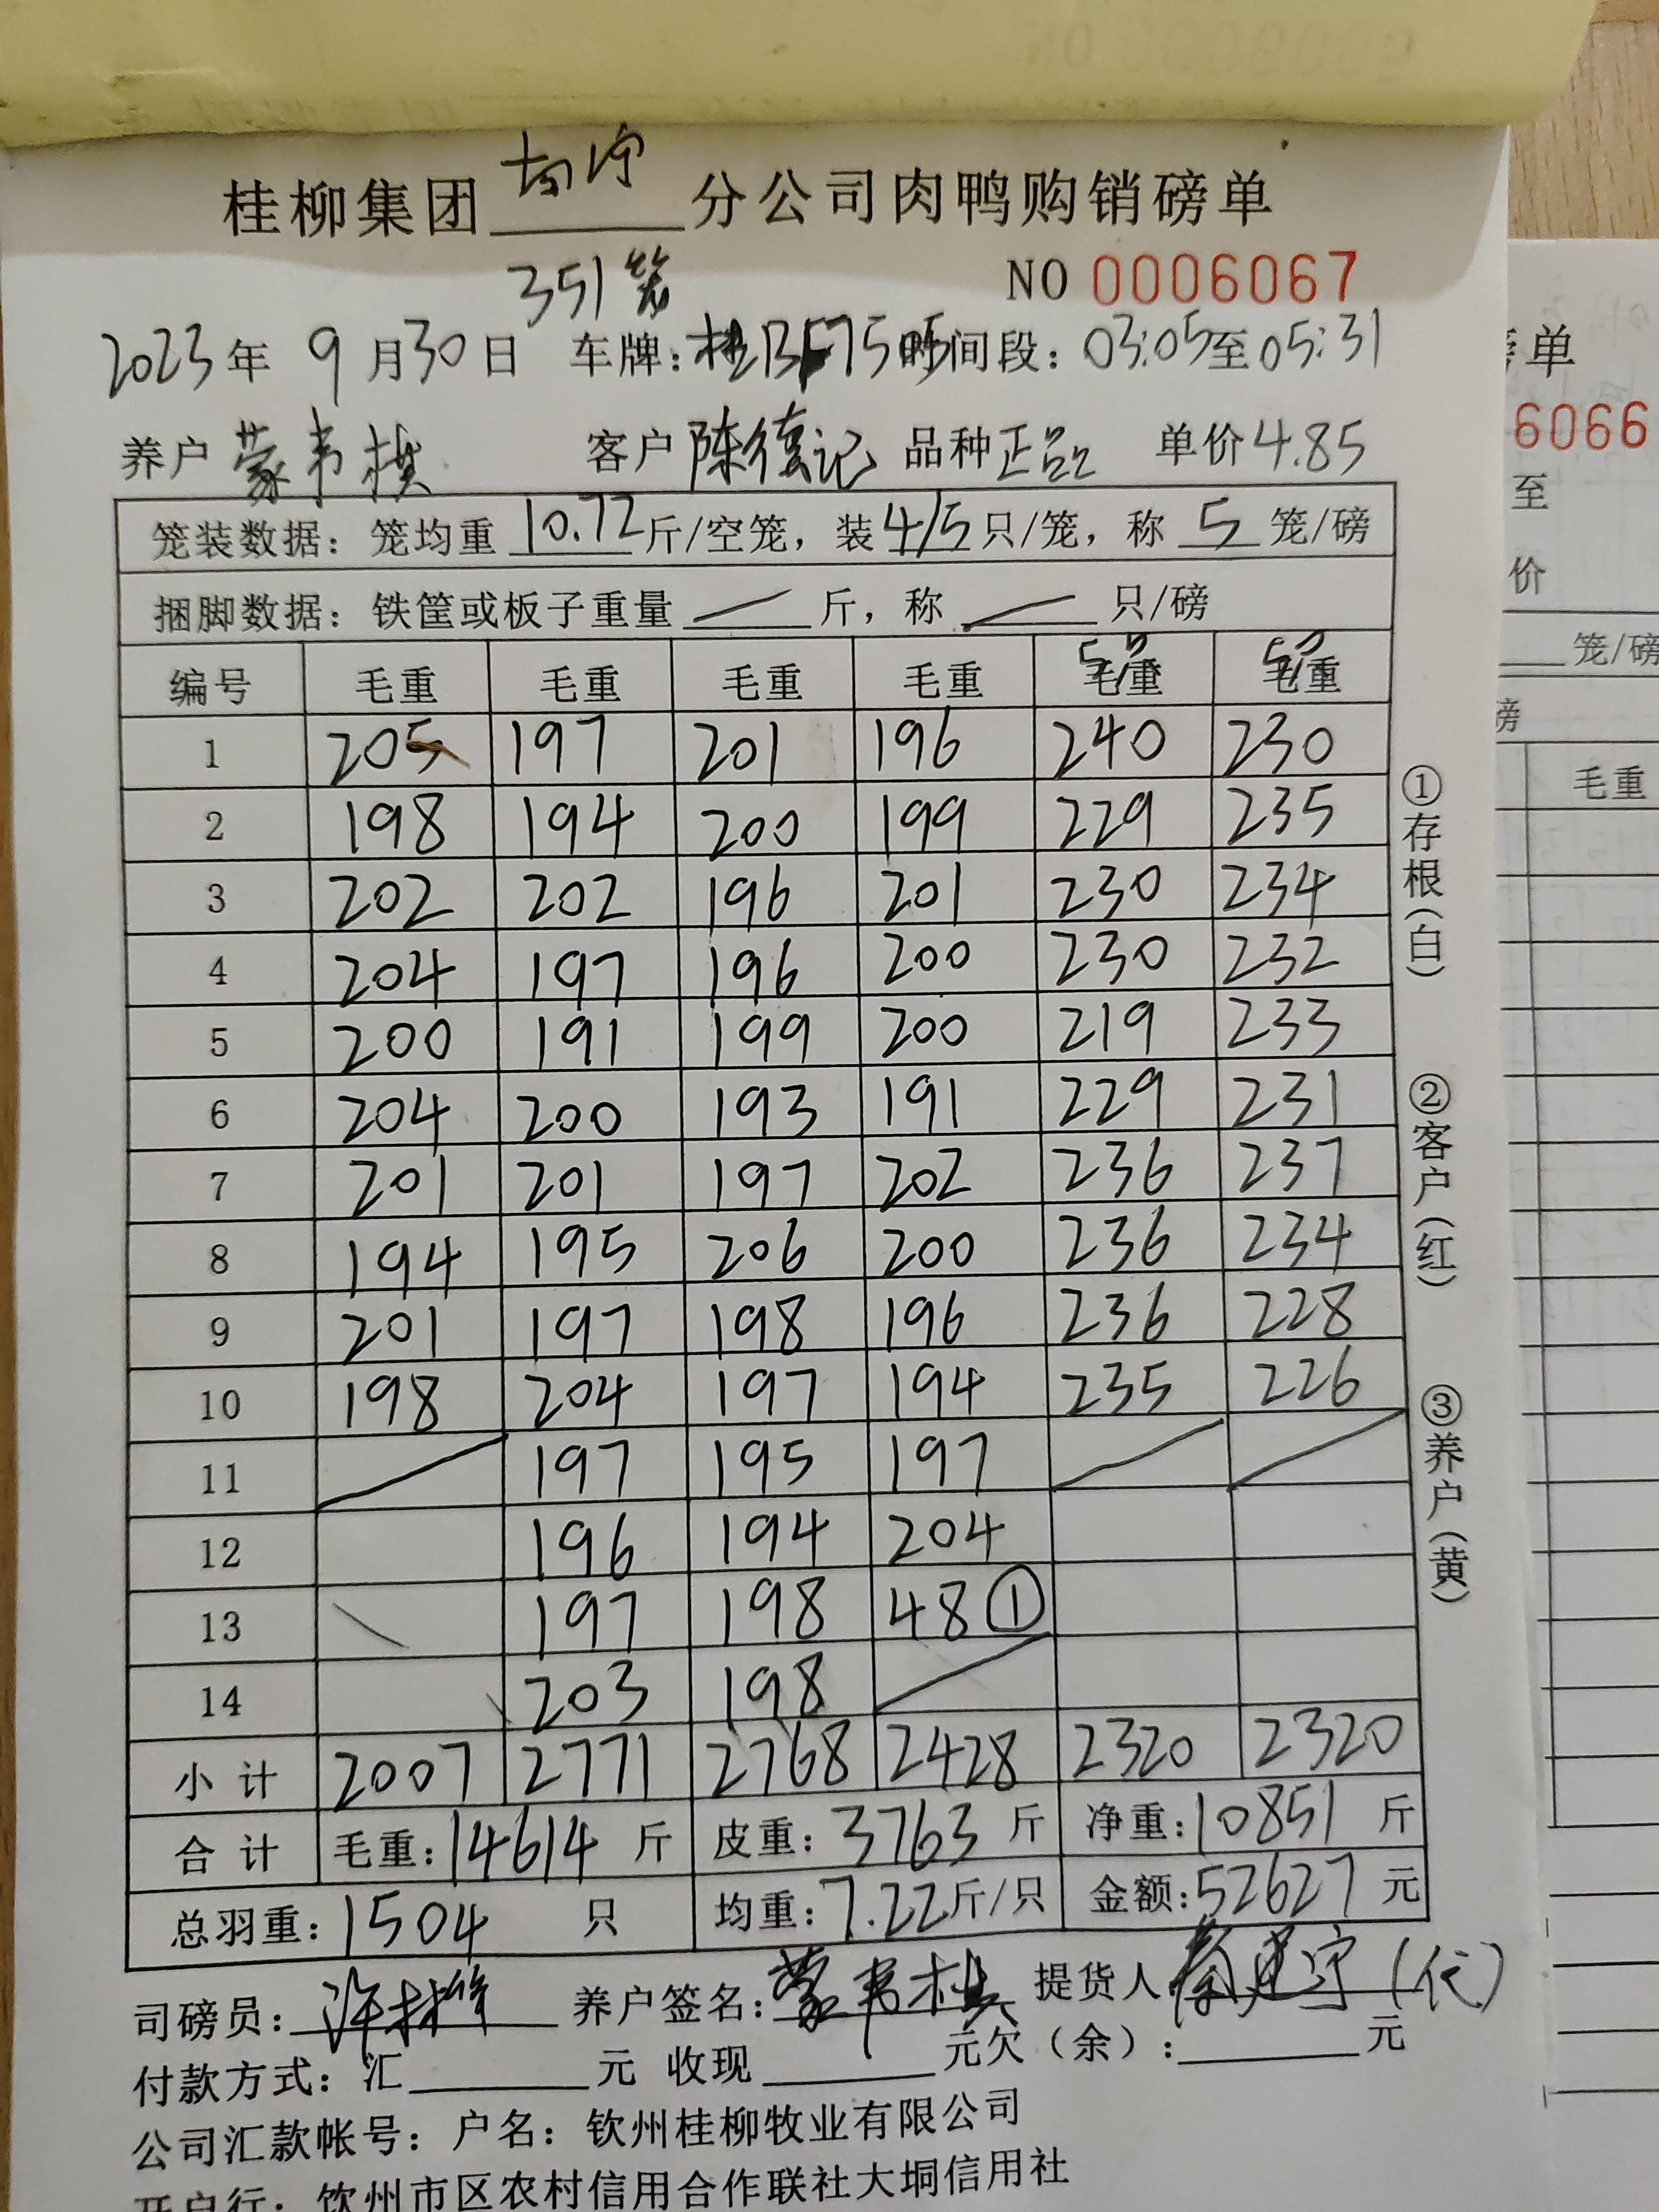 桂柳集团 南宁 分公司肉鸭购销磅单
351笼 NO 0006067
2023年 9月30日 车牌: 时间段: 03:05至05:31
养户 蒙韦 客户 陈德记 品种 正品 单价 4.85
笼装数据: 笼均重 10.72 斤/空笼, 装 4/5 只/笼, 称 5 笼/磅
捆脚数据: 铁筐或板子重量 — 斤, 称 — 只/磅
编号 毛重 毛重 毛重 毛重 毛重 毛重
1 205 197 201 196 240 230
2 198 194 200 199 229 235
3 202 202 196 201 230 234
4 204 197 196 200 230 232
5 200 191 199 200 219 233
6 204 200 193 191 229 231
7 201 201 197 202 236 237
8 194 195 206 200 236 234
9 201 197 198 196 236 228
10 198 204 197 194 235 226
11 197 195 197
12 196 194 204
13 197 198 48 ①
14 203 198
小计 2007 2771 2768 2428 2320 2320
合计 毛重: 14614 斤 皮重: 3763 斤 净重: 10851 斤
总羽重: 1504 只 均重: 7.22 斤/只 金额: 52627 元
司磅员: 养户签名: 蒙韦 提货人 (代)
付款方式: 汇 元 收现 元欠(余): 元
公司汇款帐号: 户名: 钦州桂柳牧业有限公司
开户行: 钦州市区农村信用合作联社大垌信用社
①存根(白)
②客户(红)
③养户(黄)
磅单
6066
至
价
笼/磅
磅
毛重